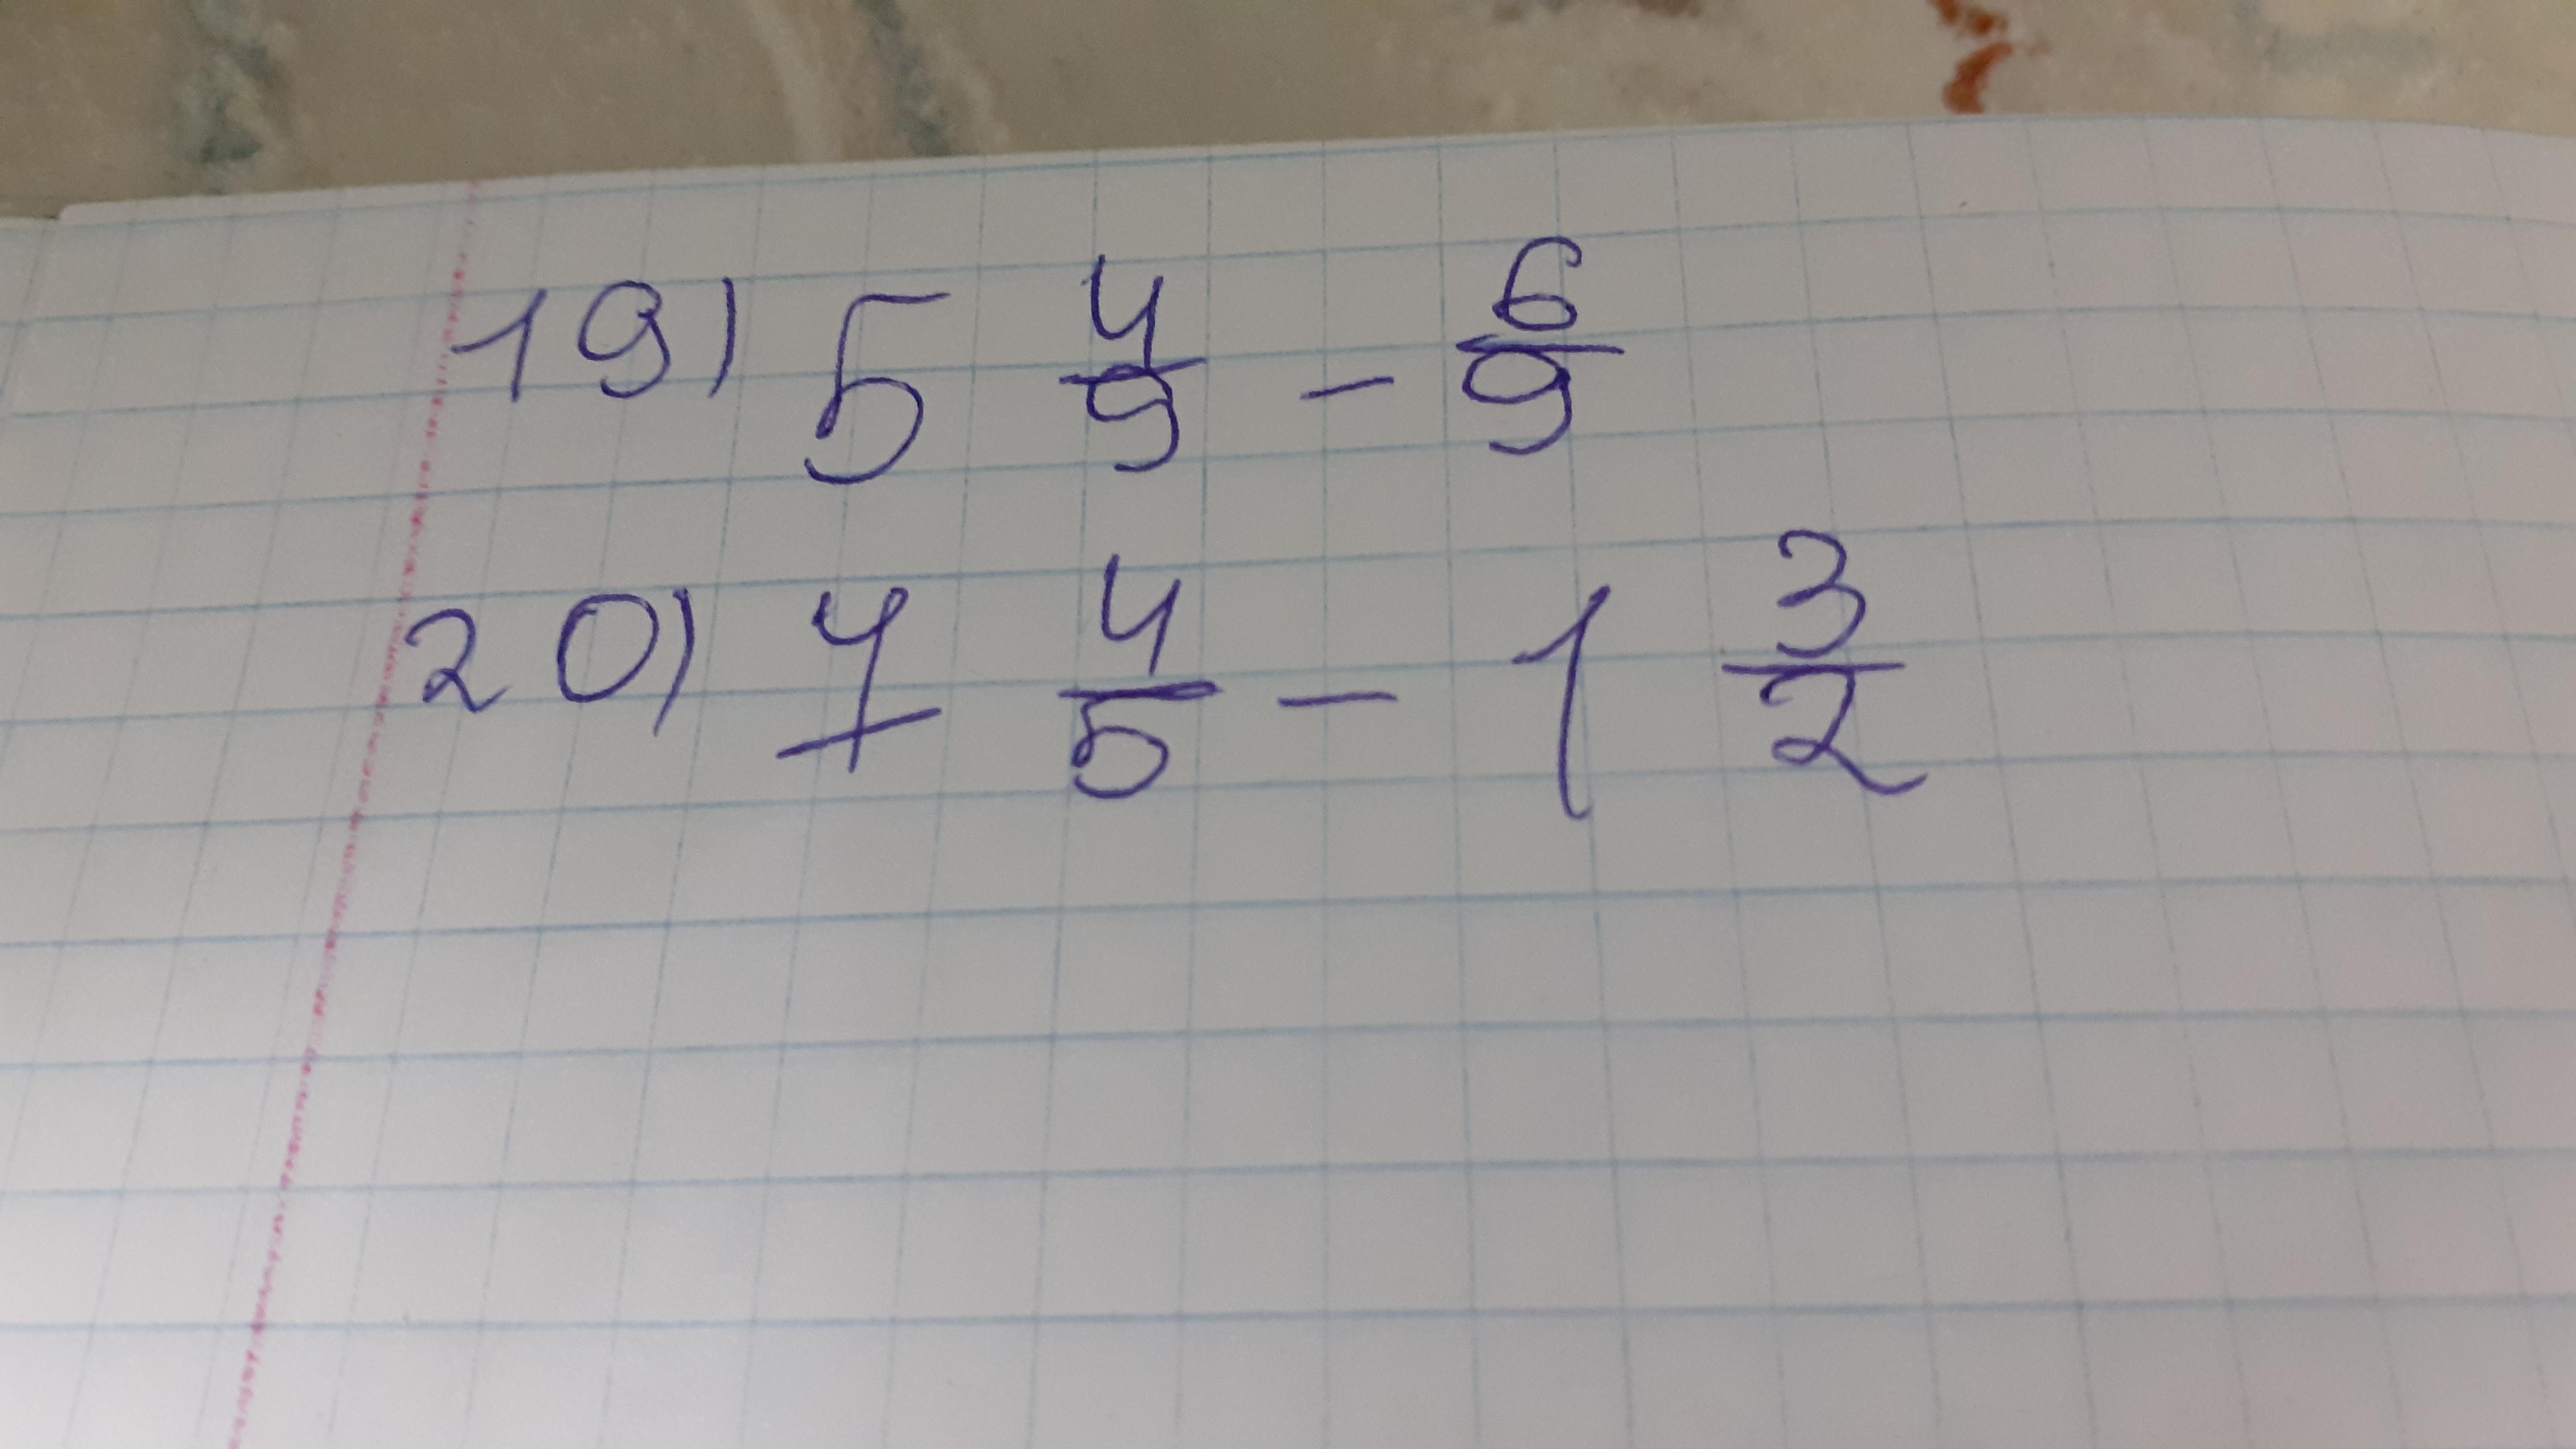 19) 5 4/9 - 6/9
20) 7 4/5 - 1 3/2